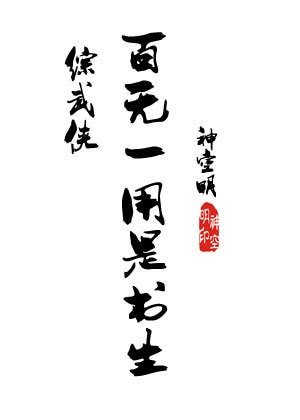 综武侠
百无一用是书生
神空明
神空
明印